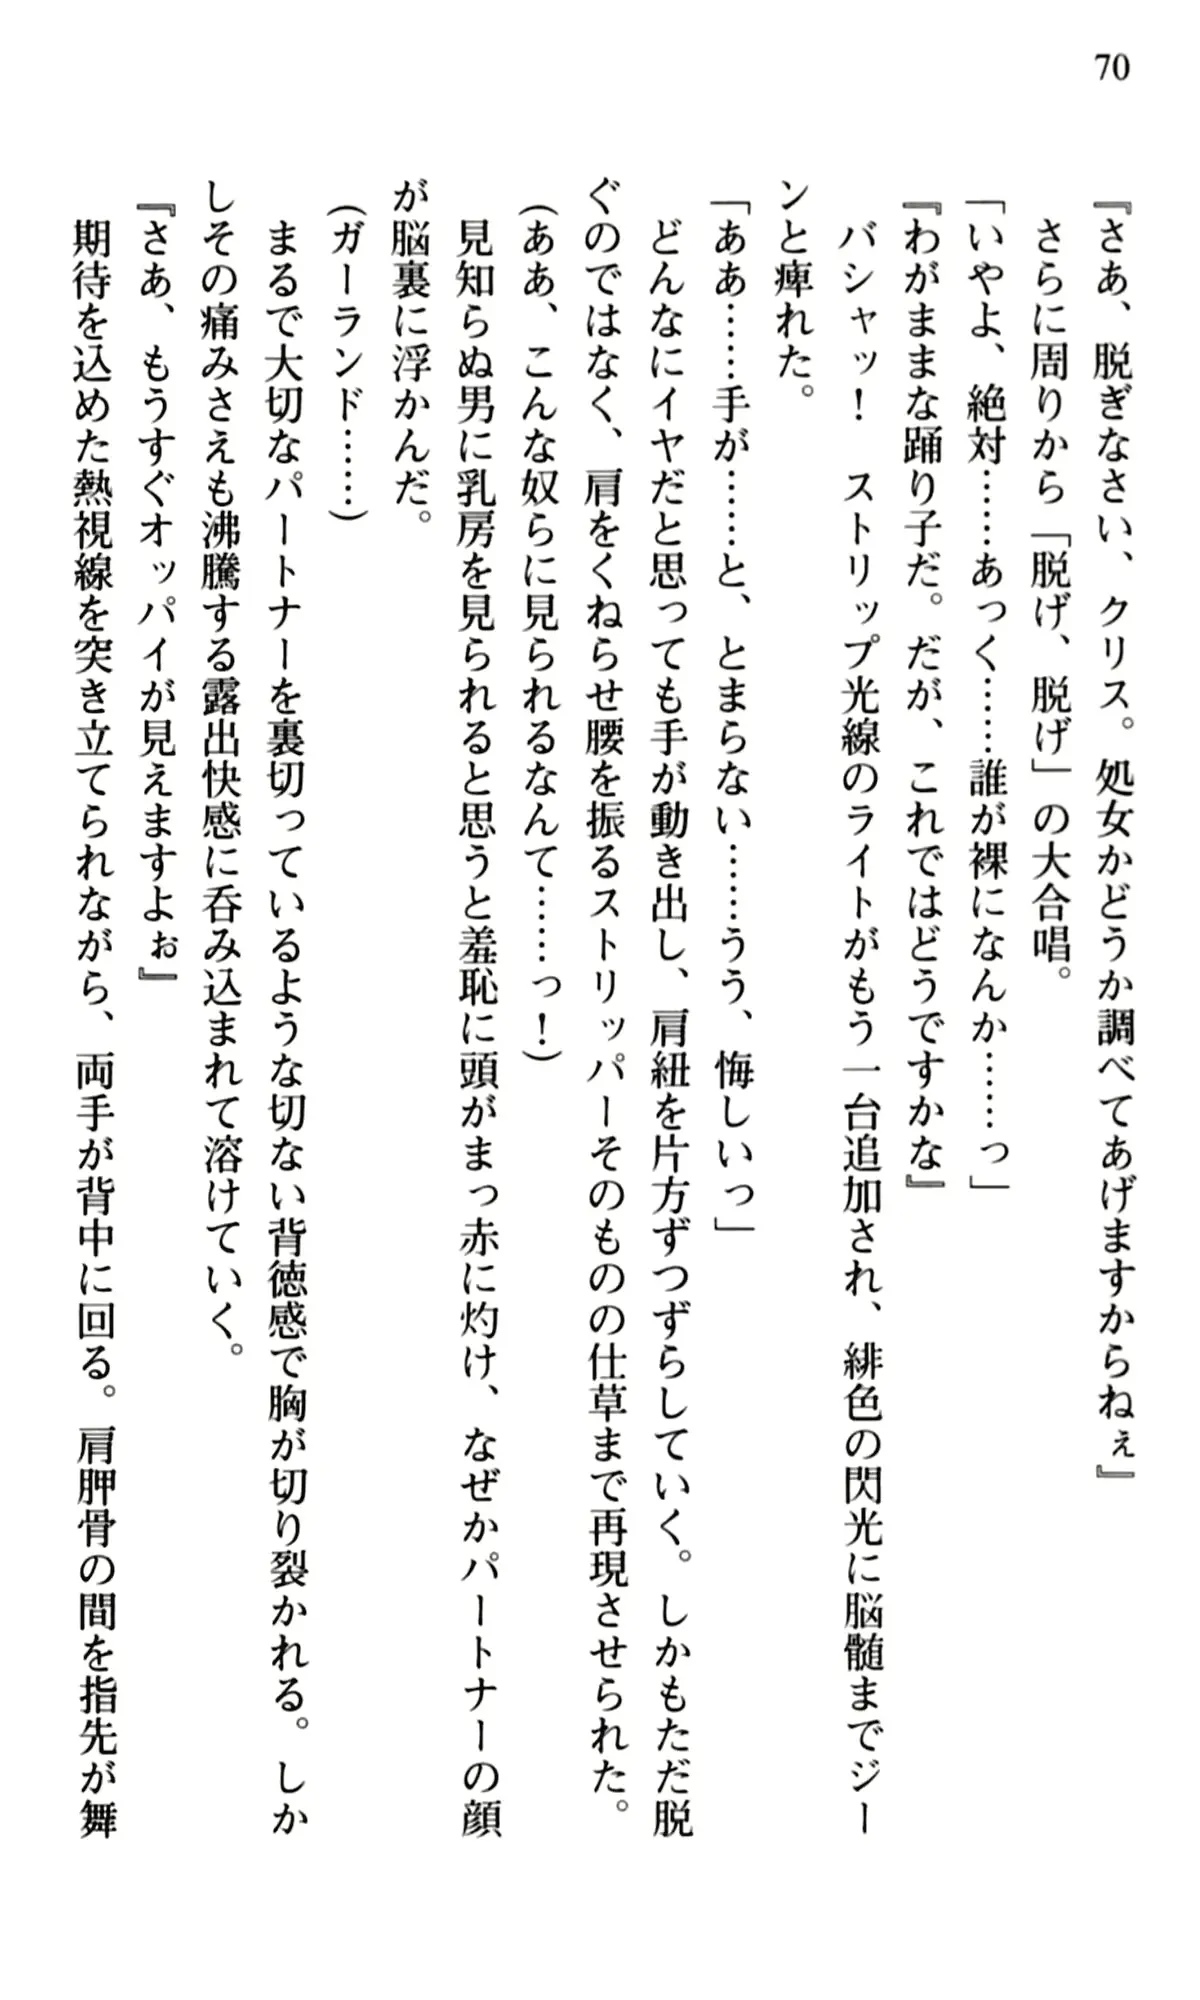 70
『さあ、脱ぎなさい、クリス。処女かどうか調べてあげますからねぇ』
さらに周りから「脱げ、脱げ」の大合唱。
「いやよ、絶対……あっく……誰が裸になんか……っ」
『わがままな踊り子だ。だが、これではどうですかな』
バシャッ！　ストリップ光線のライトがもう一台追加され、緋色の閃光に脳髄までジー
ンと痺れた。
「ああ……手が……と、とまらない……うう、悔しいっ」
どんなにイヤだと思っても手が動き出し、肩紐を片方ずつずらしていく。しかもただ脱
ぐのではなく、肩をくねらせ腰を振るストリッパーそのものの仕草まで再現させられた。
（ああ、こんな奴らに見られるなんて……っ！）
見知らぬ男に乳房を見られると思うと羞恥に頭がまっ赤に灼け、なぜかパートナーの顔
が脳裏に浮かんだ。
（ガーランド……）
まるで大切なパートナーを裏切っているような切ない背徳感で胸が切り裂かれる。しか
しその痛みさえも沸騰する露出快感に呑み込まれて溶けていく。
『さあ、もうすぐオッパイが見えますよぉ』
期待を込めた熱視線を突き立てられながら、両手が背中に回る。肩胛骨の間を指先が舞